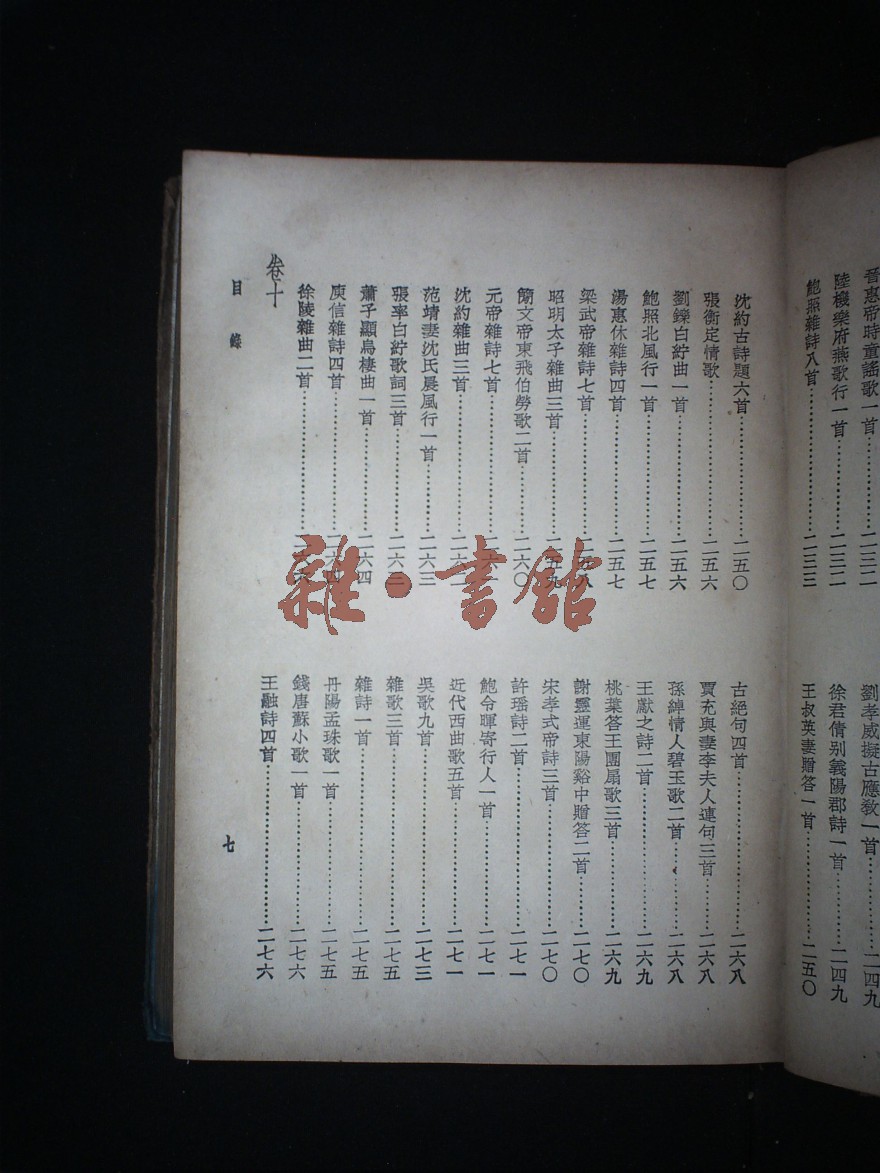 晉惠帝時童謠歌一首……二三二
陸機樂府燕歌行一首……二三二
鮑照雜詩八首……二三三
劉孝威擬古應教一首……二四九
徐君倩別義陽郡詩一首……二四九
王叔英妻贈答一首……二五〇
沈約古詩題六首……二五〇
張衡定情歌……二五六
劉鑠白紵曲一首……二五六
鮑照北風行一首……二五七
湯惠休雜詩四首……二五七
梁武帝雜詩七首……二五八
昭明太子雜曲三首……二五九
簡文帝東飛伯勞歌二首……二六〇
元帝雜詩七首……二六
沈約雜曲三首……二六
范靖妻沈氏晨風行一首……二六三
張率白紵歌詞三首……二六三
蕭子顯烏棲曲一首……二六四
庾信雜詩四首……二六四
徐陵雜曲二首……二六
卷十
古絕句四首……二六八
賈充與妻李夫人連句三首……二六八
孫綽情人碧玉歌二首……二六八
王獻之詩二首……二六九
桃葉答王團扇歌三首……二六九
謝靈運東陽谿中贈答二首……二七〇
宋孝武帝詩三首……二七〇
許瑤詩二首……二七一
鮑令暉寄行人一首……二七一
近代西曲歌五首……二七一
吳歌九首……二七三
雜歌三首……二七五
雜詩一首……二七五
丹陽孟珠歌一首……二七五
錢唐蘇小歌一首……二七六
王融詩四首……二七六
目錄
七
雜·書館